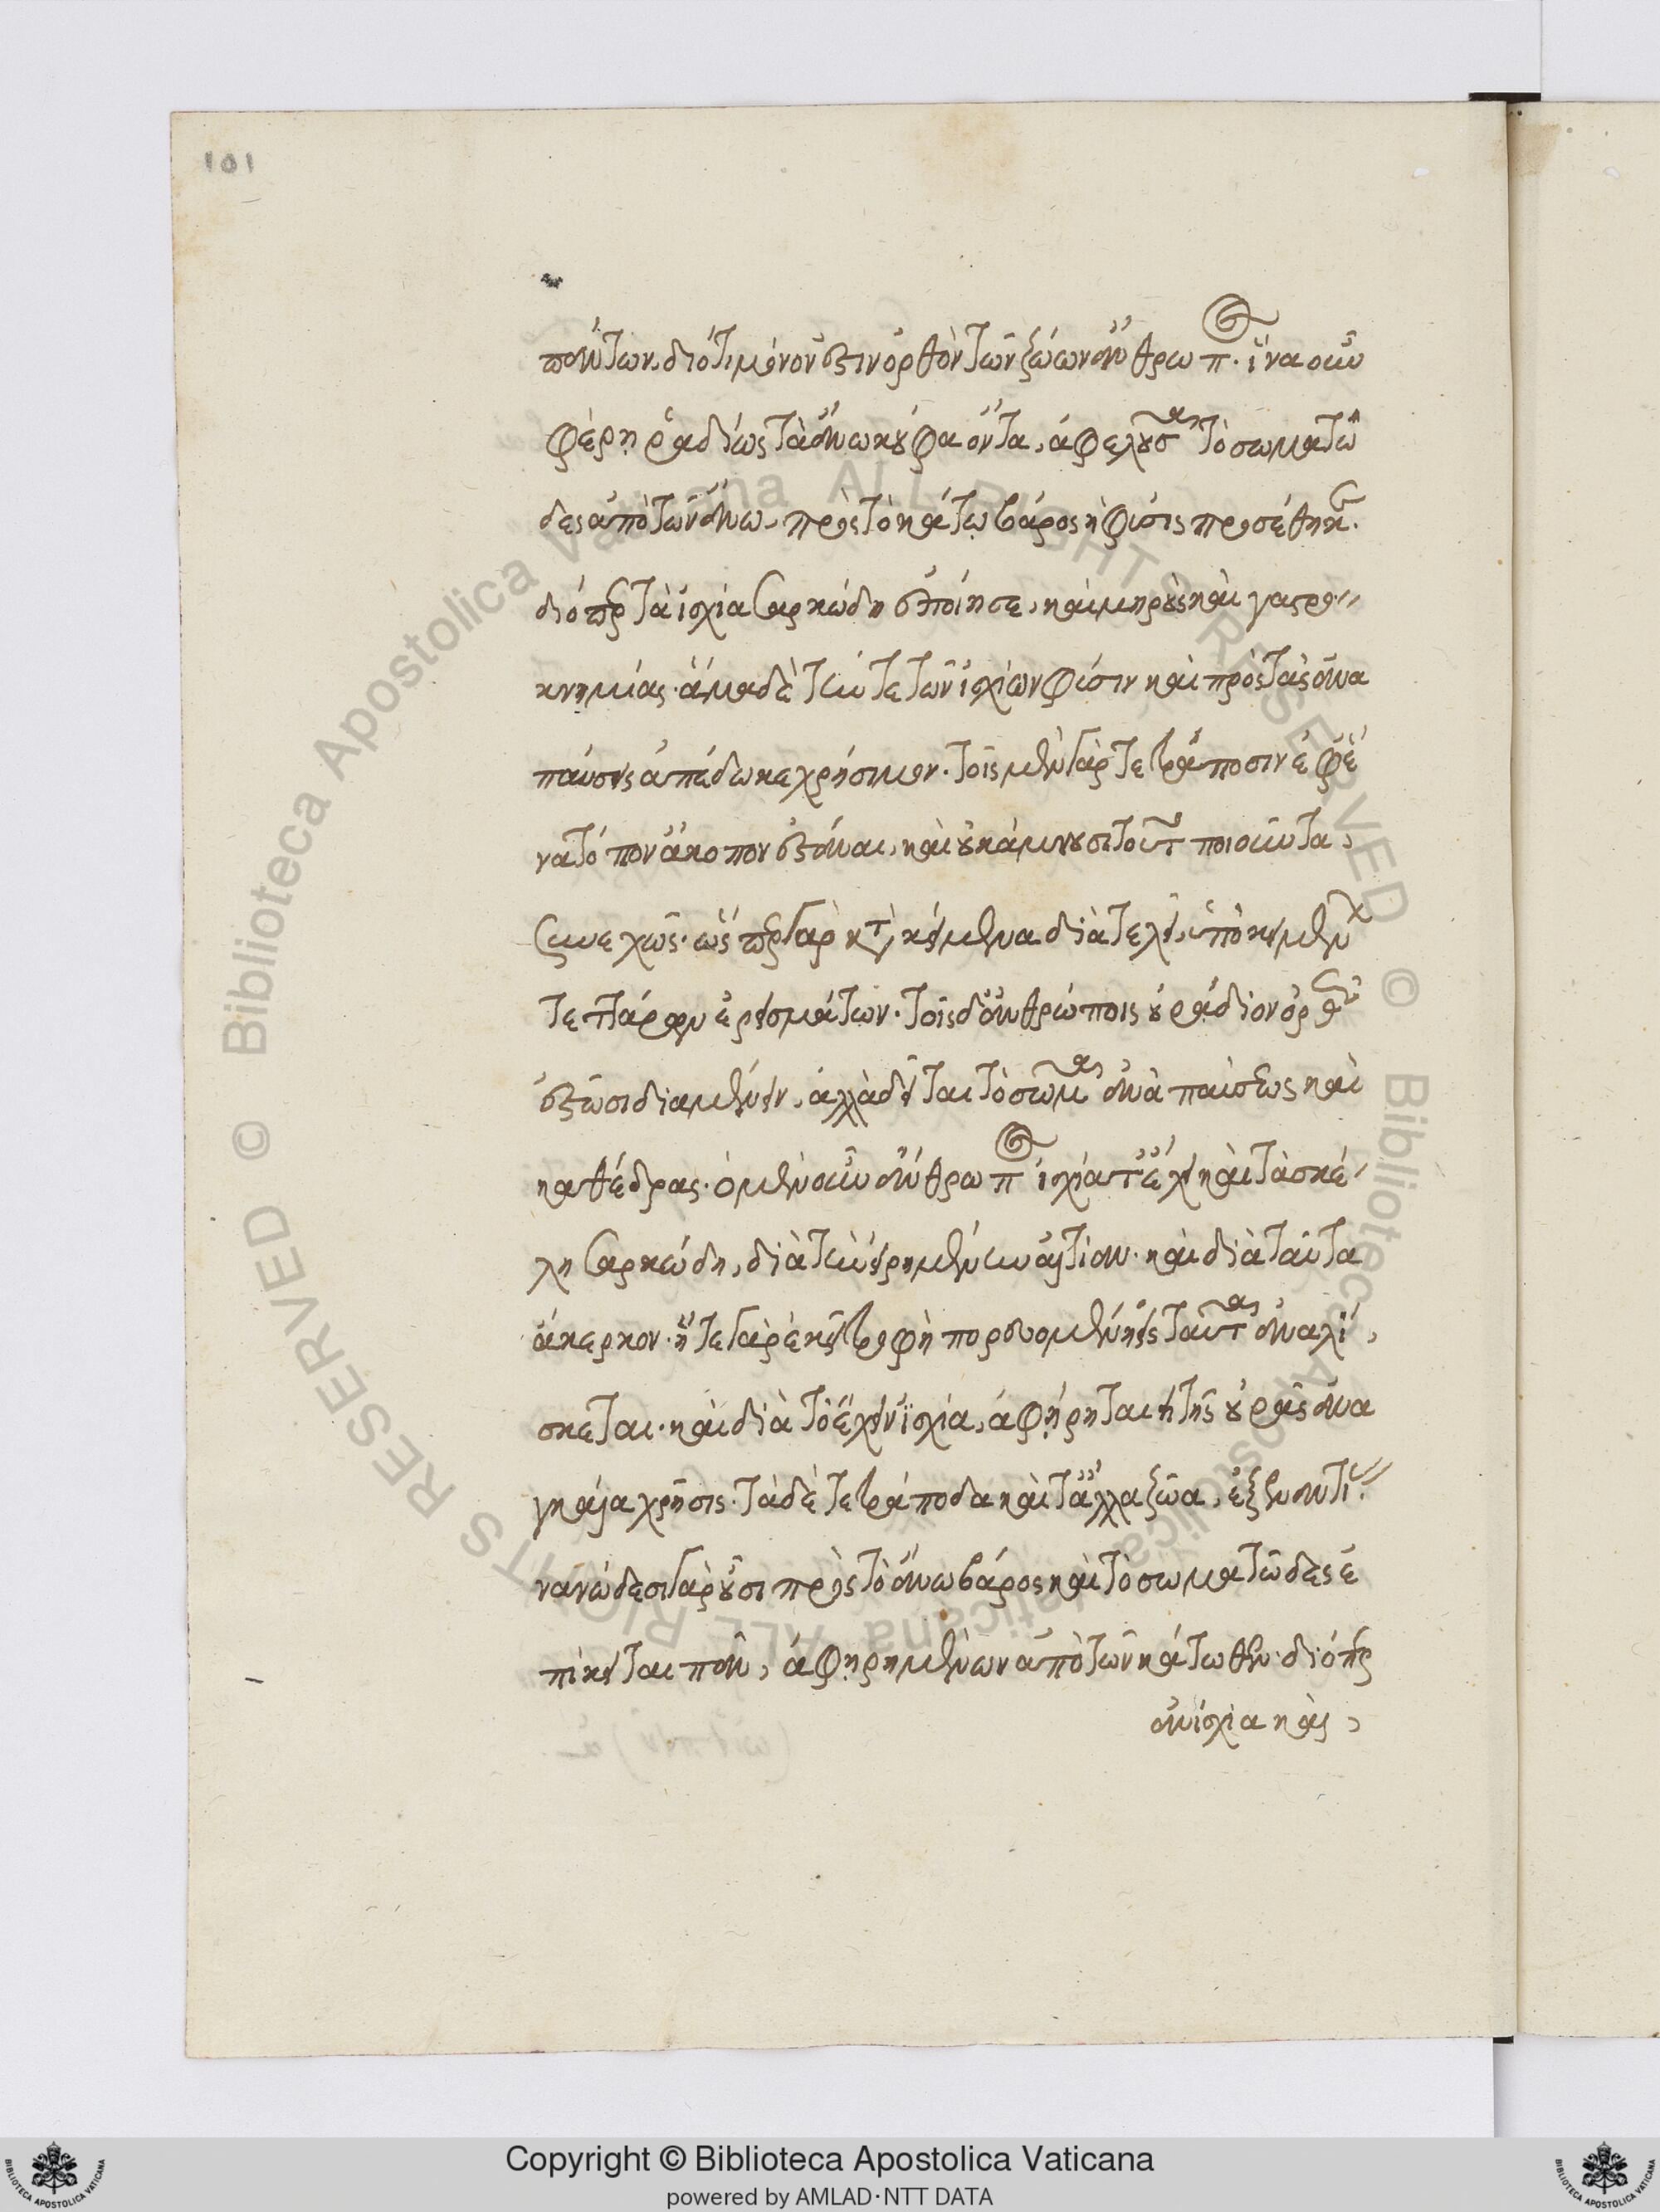 101
πάντων, διότι μόνον ἐστὶν ὀρθὸν τῶν ζώων ἄνθρωπος. ἵνα οὖν
φέρῃ ῥαδίως τὰ ἄνω κοῦφα ὄντα, ἀφελοῦσα τὸ σωματῶ
δες ἀπὸ τῶν ἄνω, πρὸς τὸ κάτω βάρος ἡ φύσις προσέθηκεν.
διόπερ τὰ ἰσχία σαρκώδη ἐποίησε, καὶ μηροὺς καὶ γαστρο
κνημίας. ἅμα δὲ τήν τε τῶν ἰσχίων φύσιν καὶ πρὸς τὰς ἀνα
παύσεις ἀπέδωκε χρήσιμον. τοῖς μὲν γὰρ τετράποσιν ἐφ' ἕ
να τόπον ἄκοπον ἑστάναι, καὶ οὐ κάμνουσι τοῦτο ποιοῦντα,
συνεχῶς. ὥσπερ γὰρ κατακείμενα διατελεῖ, ὑποκειμένων
τεττάρων ἐρεισμάτων. τοῖς δ' ἀνθρώποις οὐ ῥάδιον ὀρθῶς
ἑστῶσι διαμένειν, ἀλλὰ δεῖται τὸ σῶμα ἀναπαύσεως καὶ
καθέδρας. ὁ μὲν οὖν ἄνθρωπος ἰσχία τ' ἔχει καὶ τὰ σκέ
λη σαρκώδη, διὰ τὴν εἰρημένην αἰτίαν. καὶ διὰ ταῦτα
ἄκερκον. ἥ τε γὰρ ἐκεῖ τροφὴ πορευομένη εἰς ταῦτα ἀναλί
σκεται. καὶ διὰ τὸ ἔχειν ἰσχία, ἀφῄρηται ἡ τῆς οὐρᾶς ἀνα
γκαία χρῆσις. τὰ δὲ τετράποδα καὶ τἄλλα ζῶα, ἐξ ἐναντί
νανώδεσι γὰρ οὖσι πρὸς τὸ ἄνω βάρος καὶ τὸ σωματῶδες ἐ
πίκειται πᾶν, ἀφῃρημένων ἀπὸ τῶν κάτωθεν. διόπερ
ἀνίσχια καὶ,
Copyright © Biblioteca Apostolica Vaticana
powered by AMLAD·NTT DATA